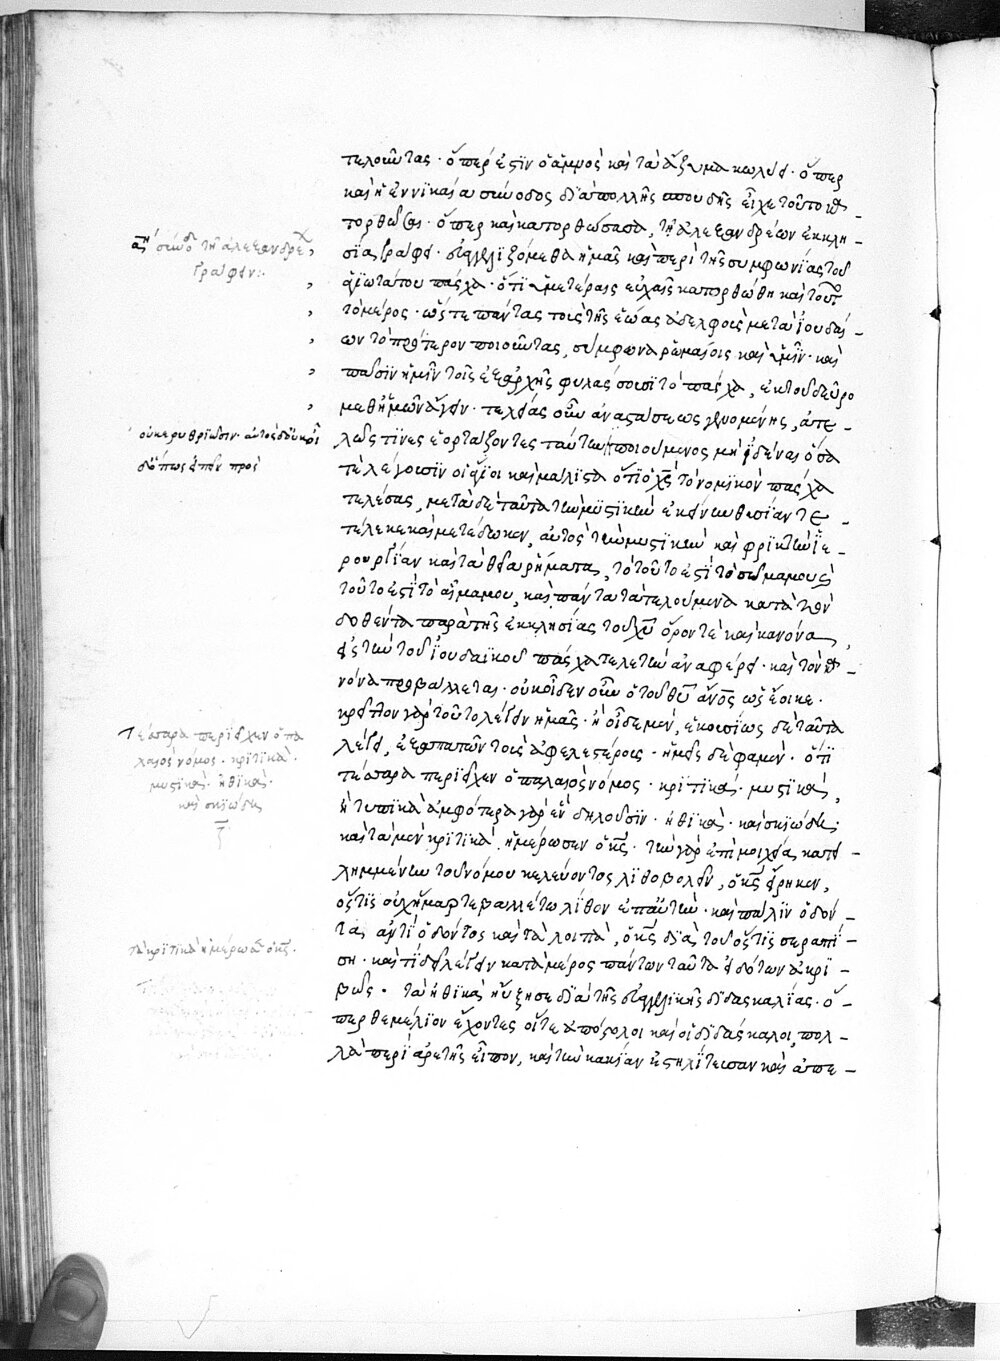 τελοῦντας · ὅπερ ἐστὶν ὁ ἄμμος καὶ τὰ ἄζυμα κωλύει · ὅπερ
καὶ ἡ ἐν νικαία σύνοδος διὰ πολλῆς σπουδῆς εἶχε τοῦτο
τορθῶσαι · ὅπερ καὶ κατορθώσασα, τῇ ἀλεξανδρέων ἐκκλη-
σία γράφει · εὐαγγελιζόμεθα ἡμᾶς καὶ περὶ τῆς συμφωνίας τοῦ
ἁγιωτάτου πάσχα · ὅτι ὑμετέραις εὐχαῖς κατορθώθη καὶ τοῦτο
τὸ μέρος · ὥστε πάντας τοὺς τῆς ἑώας ἀδελφοὺς μετὰ ἰουδαί-
ων τὸ πρότερον ποιοῦντας, σύμφωνα ῥωμαίοις καὶ ὑμῖν · καὶ
πᾶσιν ἡμῖν τοῖς ἐξαρχῆς φυλάσσουσι τὸ πάσχα, ἐκ τοῦ δεῦρο
μεθ' ἡμῶν ἄγειν · τελείας οὖν ἀναστάσεως γενομένης,
λῶς τινες ἑορτάζοντες ταύτην ποιούμενος μὴ εἰδέναι ὅσα
τε λέγουσιν οἱ ἅγιοι καὶ μάλιστα ὅτι ὁ χς τὸ νομικὸν πάσχα
τελέσας, μετὰ δὲ ταῦτα τῶν μυστικῶν ἐκείνων θυσίαν τε -
τέλεκε καὶ μετέδωκεν, αὐτὸς τῶν μυστικῶν καὶ φρικτῶν ἱε -
ρουργίαν καὶ τὰ θεωρήματα, τὸ τοῦτο ἐστὶ τὸ σῶμα μου καὶ
τοῦτο ἐστὶ τὸ αἷμα μου, καὶ πάντα τὰ τελούμενα κατὰ τὸν
δοθέντα παρὰ τῆς ἐκκλησίας τοῦ χυ ὅρον τε καὶ κανόνα,
εἰς τὴν τοῦ ἰουδαϊκοῦ πάσχα τελετὴν ἀναφέρει · καὶ τὸν
νόνα προβάλλεται · οὐκ οἶδεν οὖν ὁ τοῦ θυ ἄνος ὡς ἔοικε ·
κρεῖττον γὰρ τοῦτο λέγειν ἡμᾶς · ἢ οἶδε μὲν, ἑκουσίως δὲ ταῦτα
λέγει, ἐξαπατῶν τοὺς ἀφελεστέρους · ἡμεῖς δὲ φαμὲν · ὅτι
τέσσαρα περιεῖχεν ὁ παλαιὸς νόμος · κριτικὰ · μυστικὰ,
ἢ τυπικὰ ἀμφότερα γὰρ ἓν δηλοῦσιν · ἠθικὰ · καὶ σκιώδη ·
καὶ τὰ μὲν κριτικὰ, ἡμέρωσεν ὁ κς · τῶν γὰρ ἐπὶ μοιχείας κατει -
λημμένων τοῦ νόμου κελεύοντος λιθοβολεῖν, ὁ κς εἴρηκεν,
ὅστις οὐχ ἥμαρτε βαλλέτω λίθον ἐπ' αὐτὴν · καὶ πάλιν ὀδόν -
τα ἀντὶ ὀδόντος καὶ τὰ λοιπὰ, ὁ κς διὰ τοῦ ὅστις σε ῥαπί -
σει · καὶ τί δεῖ λέγειν κατὰ μέρος πάντων ταῦτα εἰδότων ἀκρι -
βῶς · τὰ ἠθικὰ ηὔξησε διὰ τῆς εὐαγγελικῆς διδασκαλίας · ὅ -
περ θεμέλιον ἔχοντες οἵ τε ἀπόστολοι καὶ οἱ διδάσκαλοι, πολ -
λὰ περὶ ἀρετῆς εἶπον, καὶ τὴν κακίαν ἐστηλίτευσαν καὶ ἀπε -
σύνοδ τῇ ἀλεξανδρεί
γράφειν :·
οὐκ ἐρυθριῶσιν · αὐτὸς
ὅπως εἶπεν πρὸς
Τέσσαρα περιεῖχεν ὁ πα
λαιὸς νόμος · κριτικὰ ·
μυστικὰ · ἠθικὰ ·
καὶ σκιώδη
τὰ κριτικὰ ἡμέρωσεν ὁ κς ·